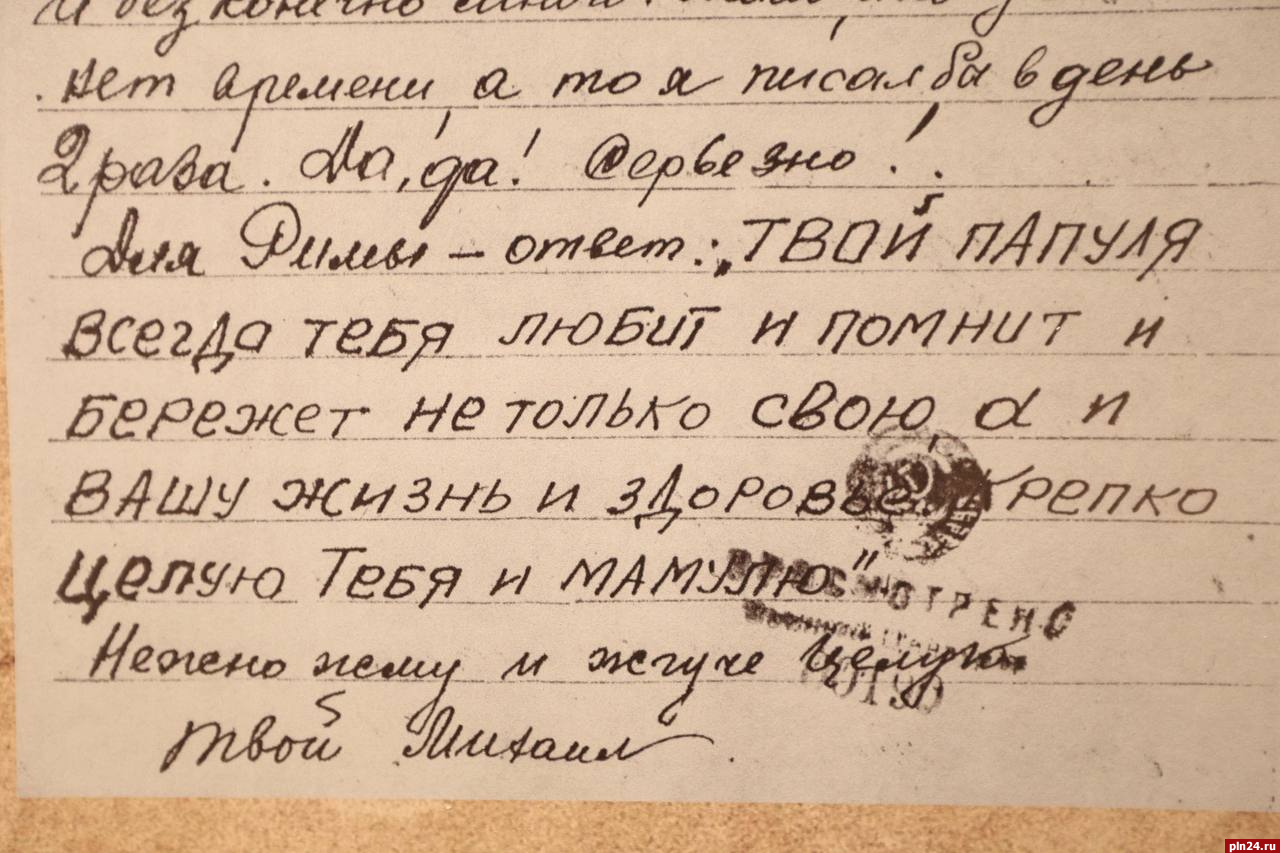 и бесконечно
нет времени, а то я писал бы в день
2 раза. Да, да! Серьезно!.
Для Римы – ответ: „ТВОЙ ПАПУЛЯ
ВСЕГДА ТЕБЯ ЛЮБИТ И ПОМНИТ И
БЕРЕЖЕТ НЕ ТОЛЬКО СВОЮ, А И
ВАШУ ЖИЗНЬ И ЗДОРОВЬЕ. КРЕПКО
ЦЕЛУЮ ТЕБЯ И МАМУЛЮ"
ПРОСМОТРЕНО
Нежно жму и жгуче целую
Твой Михаил.
pln24.ru